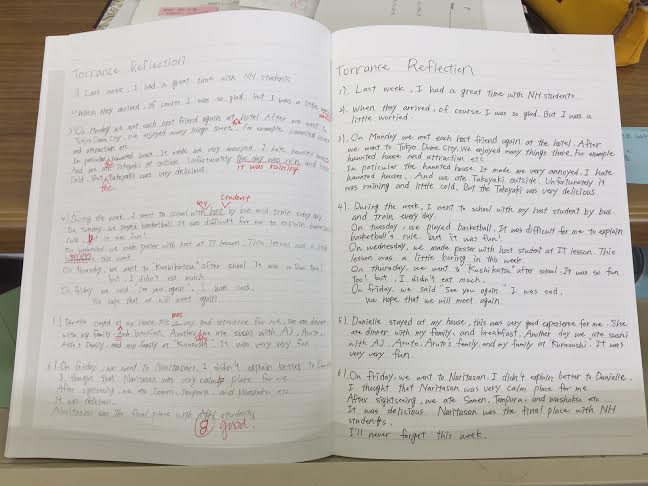 Torrance Reflection
1). Last week, I had a great time with NH students
2). When they arrived, of course I was so glad. But I was a little
3). On Monday we met each host friend again at hotel. After we went to
Tokyo Dome City. We enjoyed many things there. For example, haunted house
and attraction etc.
In particular haunted house. It made me very annoyed. I hate haunted houses.
the
And we ate Takoyaki at outside. Unfortunately the day was rain and little
it was raining
cold. But Takoyaki was very delicious.
the
my student
4). During the week, I went to school with host by bus and train every day.
On Tuesday, we played basketball. It was difficult for me to explain basketball's
rule. it was fun!
On wednesday, we made poster with host at IT lesson. This lesson was a little
boring in this week.
On Thursday, we went to "Kushikatsu" after school. It was so fun. Too!
but, I didn't eat much.
On Friday, we said "see you again". I was sad.
We hope that we will meet again.
was
5). Danielle stayed at my house, this very good experience for me. She ate dinner
with my family and breakfast. Another day we ate sushi with AJ, Amuto,
Amuto's family, and my family at "Kurazushi". It was very very fun.
6). On Friday, we went to Naritasan. I didn't explain better to Danielle.
I though that Naritasan was very calm place for me.
After sightseeing, we ate Somen, Tempura, and Washoku etc...
It was delicious.
Naritasan was the final place with NH students.
8 good!
Torrance Reflection
1). Last week, I had a great time with NH students
2). When they arrived, of course I was so glad. But I was a
little worried.
3). On Monday we met each host friend again at the hotel. After
we went to Tokyo Dome City. We enjoyed many things there. For example
haunted house and attraction etc.
In paticular the haunted house. It made me very annoyed. I hate
haunted houses. And we ate Takoyaki outside. Unfortunately it
was raining and little cold. But the Takoyaki was very delicious.
4). During the week, I went to school with my host student by bus
and train every day.
On tuesday, we played basketball. It was difficult for me to explain
basketball's rule. but it was fun!
On wednesday, we made poster with host student at IT lesson. This
lesson was a little boring in this week.
On thursday, we went to "Kushikatsu" after school. It was so fun
Too! but, I didn't eat much.
On friday, we said "See you again". I was sad.
We hope that we will meet again.
5). Danielle stayed at my house, this was very good experience for me. She
ate dinner with my family and breakfast. Another day we ate sushi
with AJ, Amuto, Amuto's family and my family at "Kurazushi". It was
very very fun.
6). On Friday, we went to Naritasan. I didn't explain better to Danielle.
I thought that Naritasan was very calm place for me.
After sightseeing, we ate Somen, Tempura, and Washoku etc...
It was delicious. Naritasan was the final place with NH
students.
I'll never forget this week.